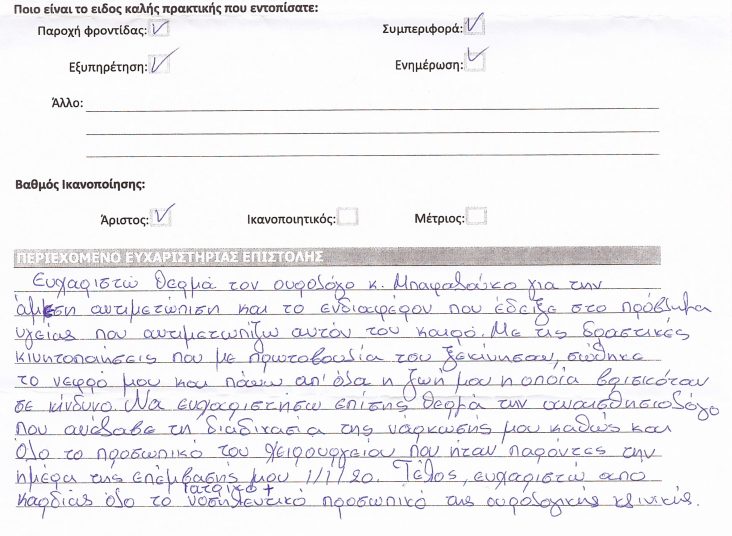 Ποιο είναι το ειδος καλής πρακτικής που εντοπίσατε:
Παροχή φροντίδας: Συμπεριφορά:
Εξυπηρέτηση: Ενημέρωση:
Άλλο:
Βαθμός Ικανοποίησης:
Άριστος: Ικανοποιητικός: Μέτριος:
ΠΕΡΙΕΧΟΜΕΝΟ ΕΥΧΑΡΙΣΤΗΡΙΑΣ ΕΠΙΣΤΟΛΗΣ
Ευχαριστώ θερμά τον ουρολόγο κ. για την
άμεση αντιμετώπιση και το ενδιαφέρον που έδειξε στο πρόβλημα
υγείας που αντιμετωπίζω αυτόν τον καιρό. Με τις δραστικές
κινητοποιήσεις που με πρωτοβουλία του ξεκίνησαν, σώθηκε
το νεφρό μου και πάνω απ' όλα η ζωή μου η οποία βρισκόταν
σε κίνδυνο. Να ευχαριστήσω επίσης θερμά την αναισθησιολόγο
που ανέλαβε τη διαδικασία της νάρκωσής μου καθώς και
όλο το προσωπικό του χειρουργείου που ήταν παρόντες την
ημέρα της επέμβασής μου 1/1/20. Τέλος, ευχαριστώ από
ιατρικό +
καρδιάς όλο το νοσηλευτικό προσωπικό της ουρολογικής κλινικής.